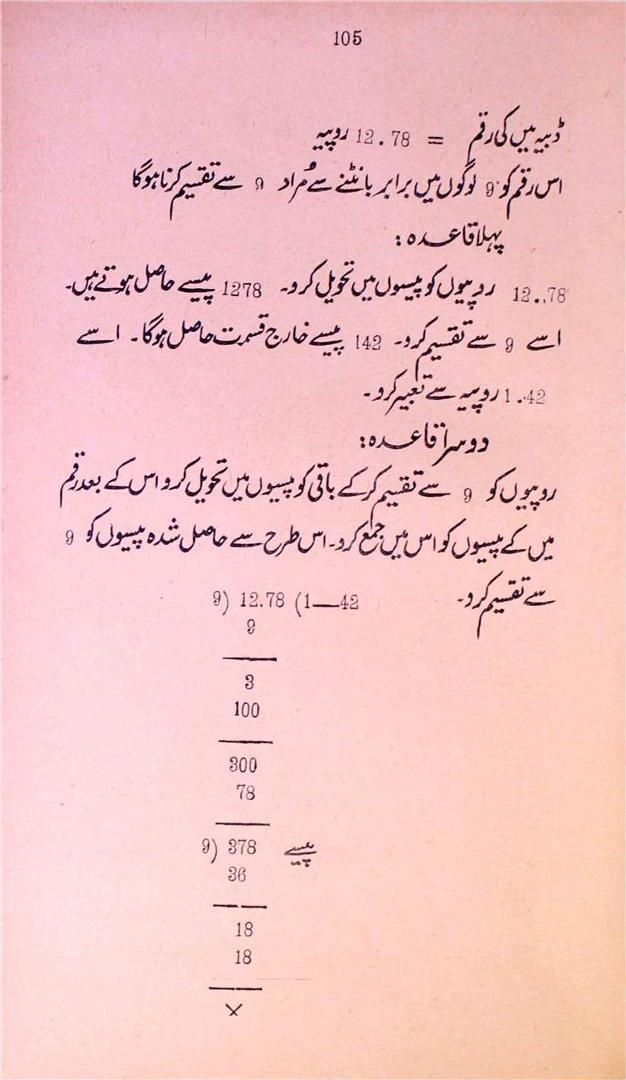 105
ڈبیہ میں کی رقم = 12.78 روپیہ
اس رقم کو 9 لوگوں میں برابر بانٹنے سے مُراد 9 سے تقسیم کرنا ہوگا
پہلا قاعدہ :
12.78 روپیوں کو پیسوں میں تحویل کرو۔ 1278 پیسے حاصل ہوتے ہیں۔
اسے 9 سے تقسیم کرو۔ 142 پیسے خارج قسمت حاصل ہوگا۔ اسے
1.42 روپیہ سے تعبیر کرو۔
دوسرا قاعدہ :
روپیوں کو 9 سے تقسیم کرکے باقی کو پیسوں میں تحویل کرو اس کے بعد رقم
میں کے پیسوں کو اس میں جمع کرو۔ اس طرح سے حاصل شدہ پیسوں کو 9
سے تقسیم کرو۔
9) 12.78 (1—42
9
3
100
300
78
9) 378 پیسے
36
18
18
×